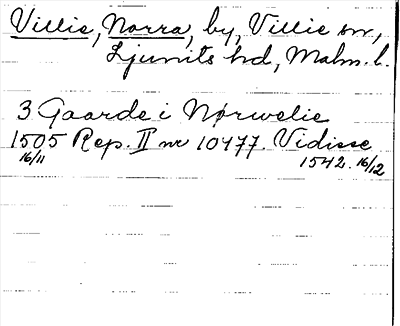 Villie, Norra, by, Villie sn,
Ljunits hd, Malm. l.
3 Gaarde i Nørwelie
1505 16/11 Rep. II nr 10477. Vidisse
1542. 16/12